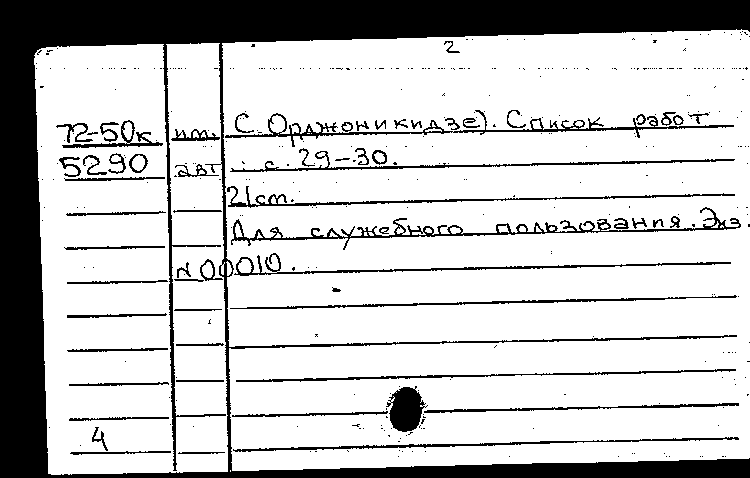 2
72-50к им. С. Орджоникидзе). Список работ
5290 авт.: с. 29-30.
21 см.
Для служебного пользования. Экз.
N 00010.
4